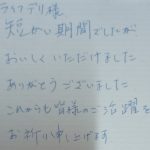 ライフデリ様
短かい期間でしたが
おいしくいただけました
ありがとうございました
これからも皆様のご活躍を
お祈り申し上げます